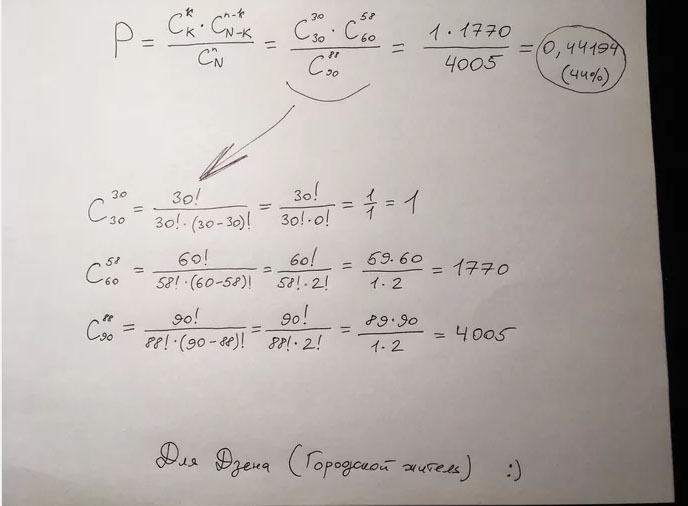 P = (C_K^k · C_{N-K}^{n-k}) / C_N^n = (C_30^30 · C_60^58) / C_90^88 = (1 · 1770) / 4005 = 0,44194 (44%)
C_30^30 = 30! / (30! · (30-30)!) = 30! / (30! · 0!) = 1/1 = 1
C_60^58 = 60! / (58! · (60-58)!) = 60! / (58! · 2!) = (59·60) / (1·2) = 1770
C_90^88 = 90! / (88! · (90-88)!) = 90! / (88! · 2!) = (89·90) / (1·2) = 4005
Для Дзена (Городской житель) :)